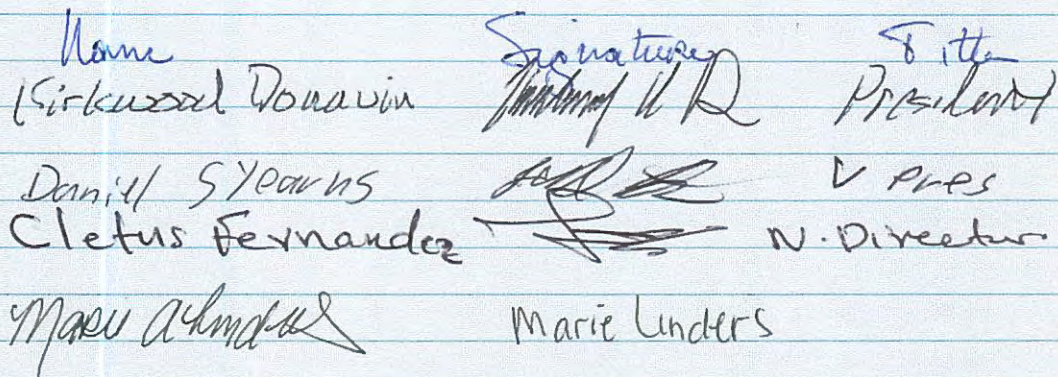 Name Signature Title
Kirkwood Donavin President
Daniel Stearns V Pres
Cletus Fernandez N. Director
Marie Linders